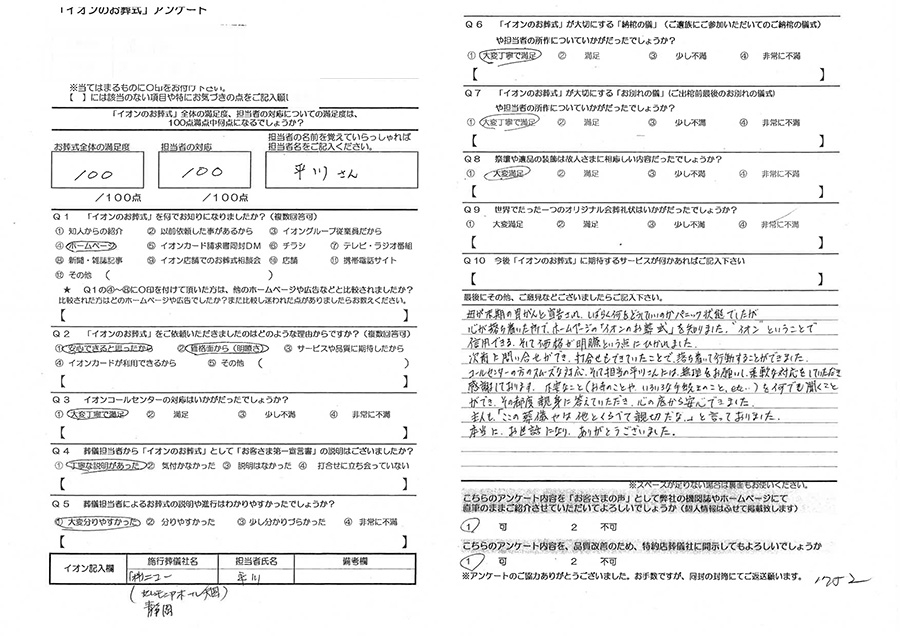 「イオンのお葬式」アンケート
※当てはまるものに○印をお付け下さい。
【 】には該当のない項目や特にお気づきの点をご記入願
「イオンのお葬式」全体の満足度、担当者の対応についての満足度は、
100点満点中何点になるでしょうか？
お葬式全体の満足度 担当者の対応 担当者の名前を覚えていらっしゃれば
担当者名をご記入ください。
100 100 平川さん
／100点 ／100点
Q1 「イオンのお葬式」を何でお知りになりましたか？（複数回答可）
① 知人からの紹介 ② 以前依頼した事があるから ③ イオングループ従業員だから
④ ホームページ ⑤ イオンカード請求書同封DM ⑥ チラシ ⑦ テレビ・ラジオ番組
⑧ 新聞・雑誌記事 ⑨ イオン店舗でのお葬式相談会 ⑩ 店舗 ⑪ 携帯電話サイト
⑫ その他（ ）
★ Q1の④～⑧に○印を付けて頂いた方は、他のホームページや広告などと比較されましたか？
比較された方はどのホームページや広告でしたか？また比較し迷われた点がありましたらお教えください。
【 】
Q2 「イオンのお葬式」をご依頼いただきましたのはどのような理由からですか？（複数回答可）
① 安心できると思ったから ② 価格面から（明瞭さ） ③ サービスや品質に期待したから
④ イオンカードが利用できるから ⑤ その他（ ）
【 】
Q3 イオンコールセンターの対応はいかがだったでしょうか？
① 大変丁寧で満足 ② 満足 ③ 少し不満 ④ 非常に不満
【 】
Q4 葬儀担当者から「イオンのお葬式」として「お客さま第一宣言書」の説明はございましたか？
① 丁寧な説明があった ② 気付かなかった ③ 説明はなかった ④ 打合せに立ち会っていない
【 】
Q5 葬儀担当者によるお葬式の説明や進行はわかりやすかったでしょうか？
① 大変分りやすかった ② 分りやすかった ③ 少し分りづらかった ④ 非常に不満
【 】
イオン記入欄 施行葬儀社名 担当者氏名 備考欄
平川
静岡
Q6 「イオンのお葬式」が大切にする「納棺の儀」（ご遺族にご参加いただいてのご納棺の儀式）
や担当者の所作についていかがだったでしょうか？
① 大変丁寧で満足 ② 満足 ③ 少し不満 ④ 非常に不満
【 】
Q7 「イオンのお葬式」が大切にする「お別れの儀」（ご出棺前最後のお別れの儀式）
や担当者の所作についていかがだったでしょうか？
① 大変丁寧で満足 ② 満足 ③ 少し不満 ④ 非常に不満
【 】
Q8 祭壇や遺品の装飾は故人さまに相応しい内容だったでしょうか？
① 大変満足 ② 満足 ③ 少し不満 ④ 非常に不満
【 】
Q9 世界でたった一つのオリジナル会葬礼状はいかがだったでしょうか？
① 大変満足 ② 満足 ③ 少し不満 ④ 非常に不満
【 】
Q10 今後「イオンのお葬式」に期待するサービスが何かあればご記入下さい
【 】
最後にその他、ご意見などございましたらご記入下さい。
母が末期の胃がんと宣告され、しばらく何をどうていいのかパニック状態でしたが
心が落ち着いた所で、ホームページの「イオンのお葬式」を知りました。"イオン"ということで
信用できる、そして価格が明瞭という点にひかれました。
事前に問い合せができ、打合せもできていたことで、落ち着いて行動することができました。
コールセンターの方のスムーズな対応、そして担当の平川さんには、無理をお願いし、柔軟な対応をしていただき
感謝しております。不安なこと（お寺のことや、いろいろな手続き上のこと、etc…）も何でも聞くこと
ができ、その都度親身に答えていただき、心の底から安心できました。
主人も、「ここの葬儀やは他とくらべて親切だな。」と言っておりました。
本当に、お世話になり、ありがとうございました。
※スペースが足りない場合は裏面もお使いください。
こちらのアンケート内容を「お客さまの声」として弊社の機関誌やホームページにて
直筆のままご紹介させていただいてよろしいでしょうか（個人情報はふせて掲載致します）
1 可 2 不可
こちらのアンケート内容を、品質改善のため、特約店葬儀社に開示してもよろしいでしょうか
1 可 2 不可
※アンケートのご協力ありがとうございました。お手数ですが、同封の封筒にてご返送願います。